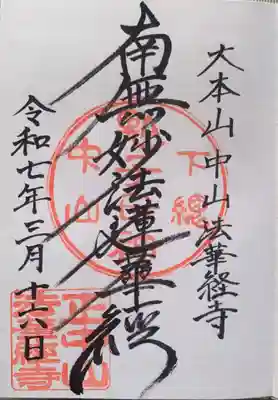 大本山中山法華経寺
南無妙法蓮華経
令和七年三月十六日
下総
中山
正中山
法華経寺